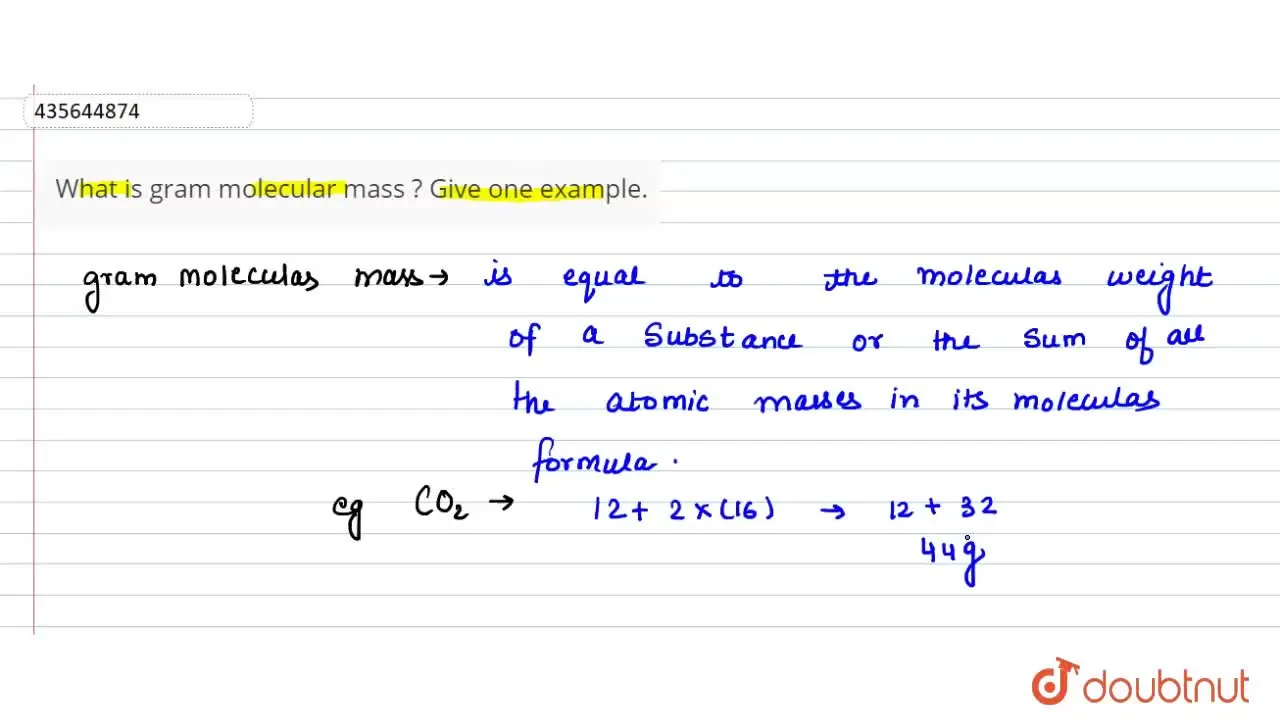 435644874
What is gram molecular mass ? Give one example.
gram moleculas mass → is equal to the moleculas weight
of a Substance or the Sum of all
the atomic masses in its moleculas
formula.
eg CO₂ → 12 + 2 × (16) → 12 + 32
44g
doubtnut